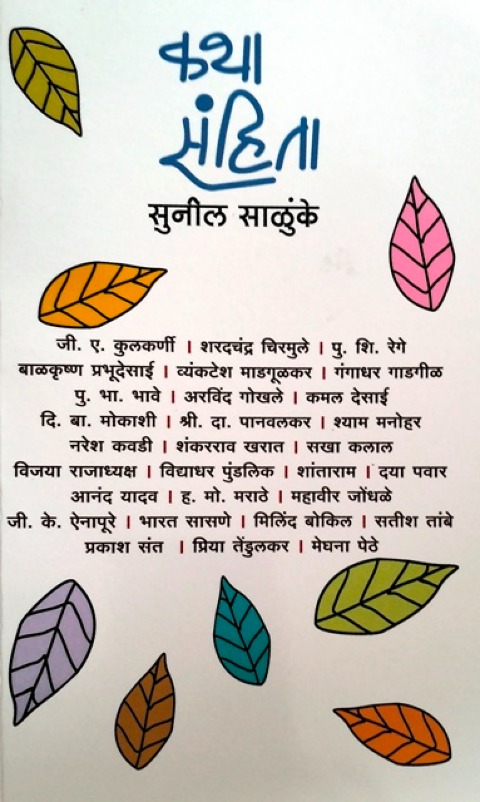 कथा
संहिता
सुनील साळुंके
जी. ए. कुलकर्णी । शरदचंद्र चिरमुले । पु. शि. रेगे
बाळकृष्ण प्रभूदेसाई । व्यंकटेश माडगूळकर । गंगाधर गाडगीळ
पु. भा. भावे । अरविंद गोखले । कमल देसाई
दि. बा. मोकाशी । श्री. दा. पानवलकर । श्याम मनोहर
नरेश कवडी । शंकरराव खरात । सखा कलाल
विजया राजाध्यक्ष । विद्याधर पुंडलिक । शांताराम । दया पवार
आनंद यादव । ह. मो. मराठे । महावीर जोंधळे
जी. के. ऐनापूरे । भारत सासणे । मिलिंद बोकिल । सतीश तांबे
प्रकाश संत । प्रिया तेंडुलकर । मेघना पेठे